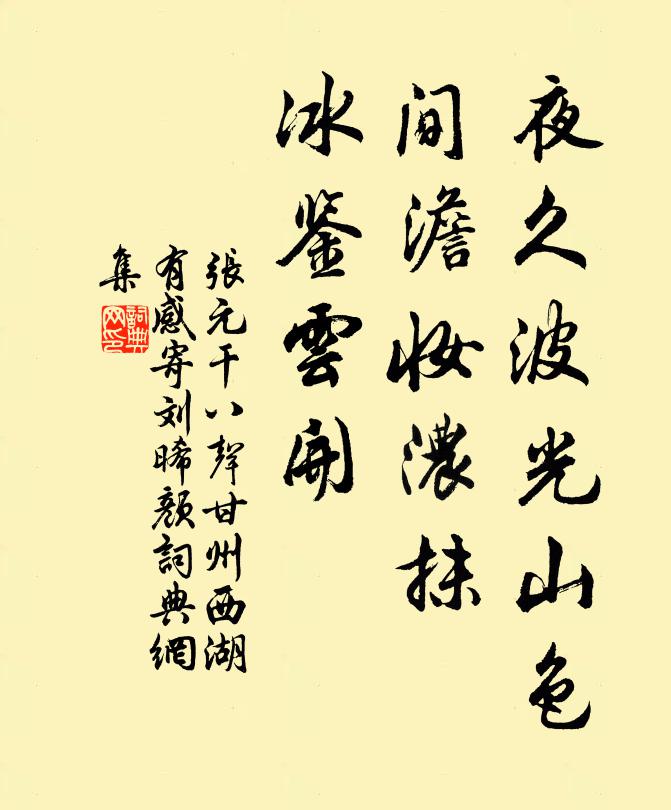 夜久波光山色
间澹妆濃抹
冰鉴雲開
張元干八聲甘州西湖
有感寄刘晞顏詞典網
集
詞典网印